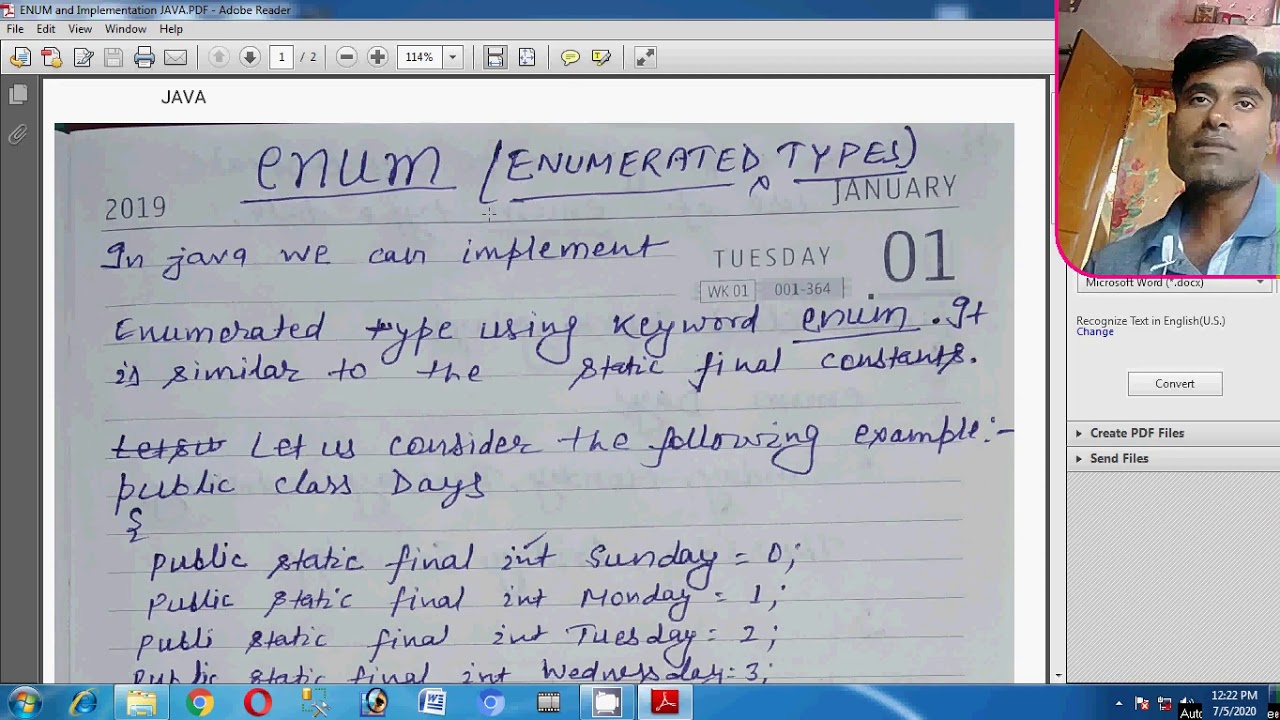 ENUM and Implementation JAVA.PDF - Adobe Reader
File Edit View Window Help
1 / 2 114%
JAVA
enum (ENUMERATED TYPES)
2019 JANUARY
In java we can implement
TUESDAY 01
WK 01 001-364
Enumerated type using keyword enum. It
is similar to the static final constants.
Let us consider the following example:-
public class Days
{
public static final int Sunday = 0;
public static final int Monday = 1;
publi static final int Tuesday = 2;
public static final int Wednessday = 3;
Microsoft Word (*.docx)
Recognize Text in English(U.S.)
Change
Convert
Create PDF Files
Send Files
12:22 PM
7/5/2020